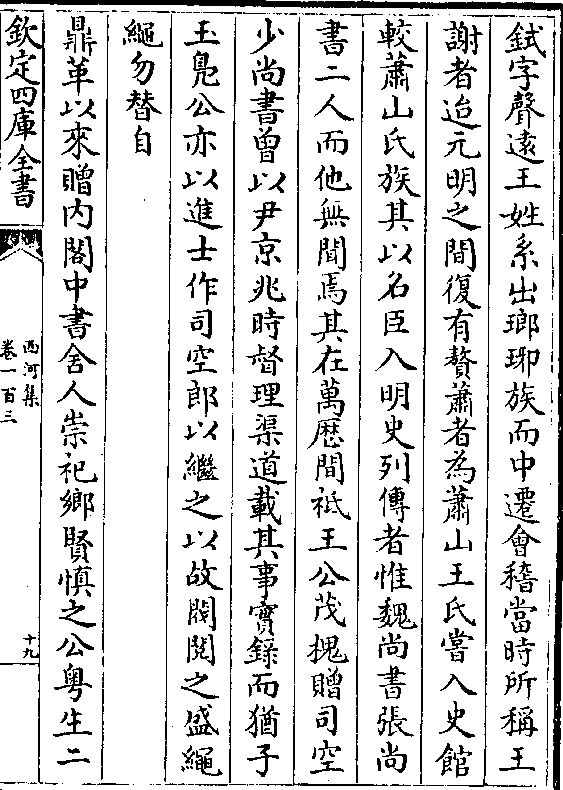 鉽字聲遠王姓系出瑯琊族而中遷會稽當時所稱王
謝者迨元明之間復有贅蕭者為蕭山王氏嘗入史館
較蕭山氏族其以名臣入明史列傳者惟魏尚書張尚
書二人而他無聞焉其在萬厯間祗王公茂槐贈司空
少尚書曾以尹京兆時督理渠道載其事實錄而猶子
玉鳧公亦以進士作司空郎以繼之以故閥閱之盛繩
繩勿替自
鼎革以來贈内閣中書舍人崇祀鄉賢慎之公粤生二
欽定四庫全書
西河集
卷一百三
十九